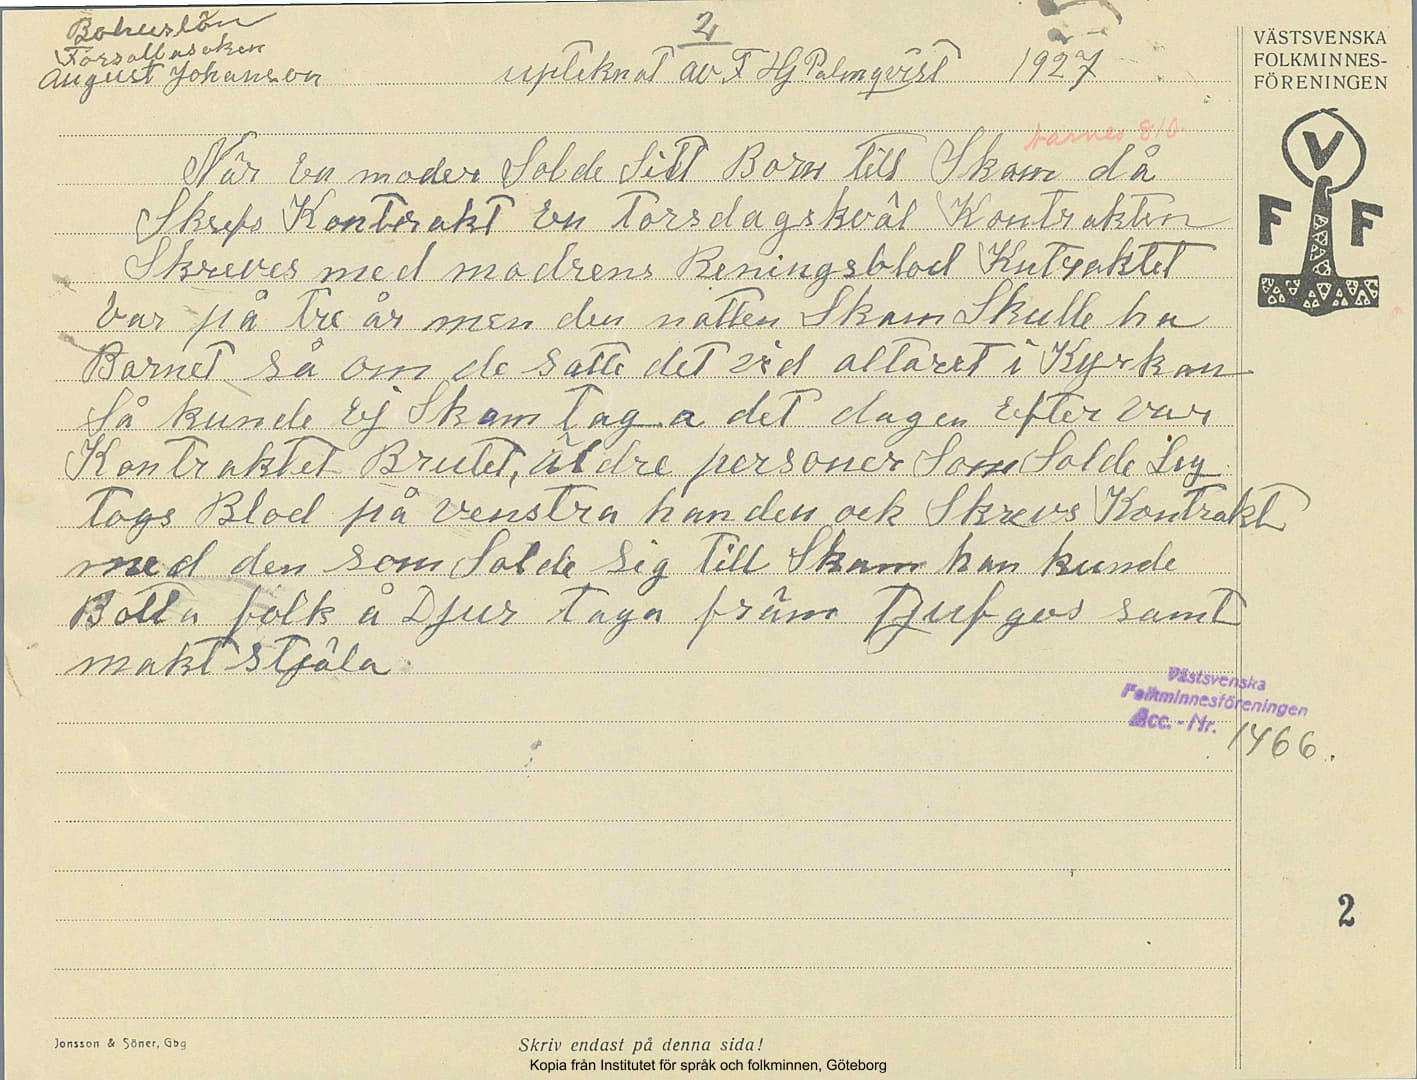 Bohuslän
2
VÄSTSVENSKA
FOLKMINNES-
FÖRENINGEN
August Johanson
upteknat av F Hj Palmqvist 1927
När En moder Solde Sitt Born till Skam då
Skrefs Kontrakt En Torsdagskväl Kontrakten
Skreves med modrens Reningsblod Kntraktet
Var på tre år men den natten Skam Skulle ha
Barnet så om de satte det vid altaret i Kyrkan
Så kunde Ej Skam taga det dagen Efter var
Kontraktet Brutet, äldre personer Som Solde Sig
togs Blod på venstra handen ock Skrevs Kontrakt
med den som Solde Sig till Skam han kunde
Botta folk å Djur taga främ tjufgos samt
makt stjäla
V
F F
Västsvenska
Folkminnesföreningen
Acc. - Nr. 1466.
2
Jonsson & Söner, Gbg
Skriv endast på denna sida!
Kopia från Institutet för språk och folkminnen, Göteborg